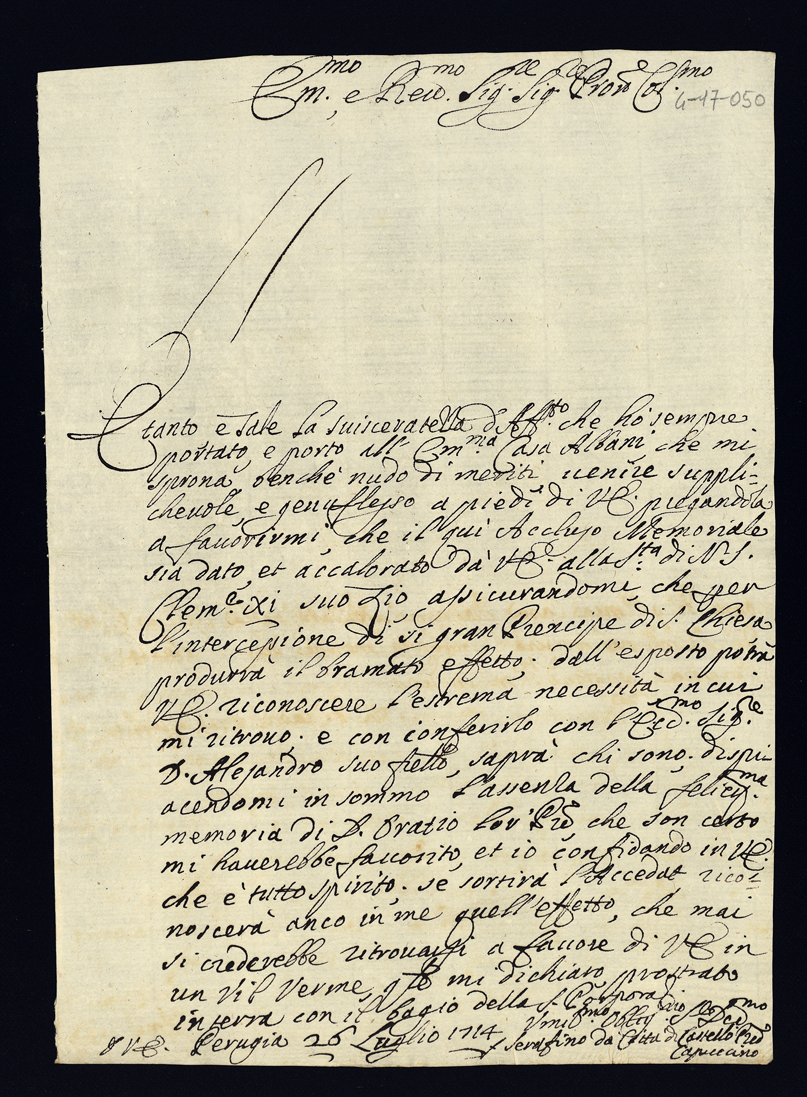 Em.mo e Reu.mo Sig.re Sig.re Pron.e Col.mo
4-17-050
E tanto e tale la suisceratella d'Aff.to che hò sempre
portato e porto all' Em.ma Casa Albani, che mi
sprona, benche nudo di meriti uenire suppli=
cheuole, e genuflesso a piedi di VE. pregandola
a fauorirmi, che il qui Accluso Memoriale
sia dato, et accalorato dà VE. alla S.tà di N. S.
Clem.te XI suo Zio, assicurandomi, che per
l'intercessione di si gran Prencipe di S. Chiesa
produrrà il bramato effetto. dall'esposto potrà
VE. riconoscere l'estrema necessità in cui
mi ritrouo. e con conferirlo con l'Ecc.mo Sig.re
D. Alesandro suo fretto, saprà chi sono. dispi=
acendomi in sommo l'assenza della felicis.ma
memoria di D. Oratio lor' P.re che son certo
mi hauerebbe fauorito, et io confidando in VE.
che è tutto spirito. se sortirà l'Accedat rico=
noscerà anco in me quell'effetto, che mai
si crederebbe ritrouarsi a fauore di VE in
un Vil Verme, q.to mi dichiaro prostrato
in terra con il bagio della S. Porpora
d VE. Perugia 26 Luglio 1714
Vmil.mo Oblig.mo
f Serafino da Città di Castello
Capuccino